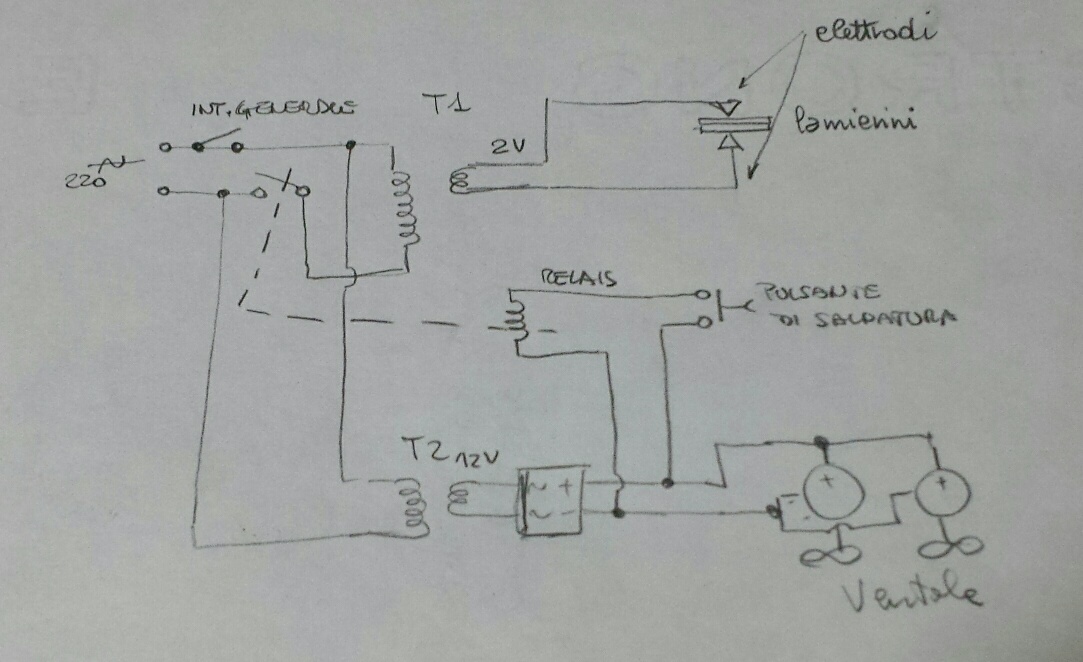 elettrodi
INT. GENERALE
T1
lamierini
2V
220
RELAIS
PULSANTE
DI SALDATURA
T2
12V
~ +
~ -
+
-
+
Ventole